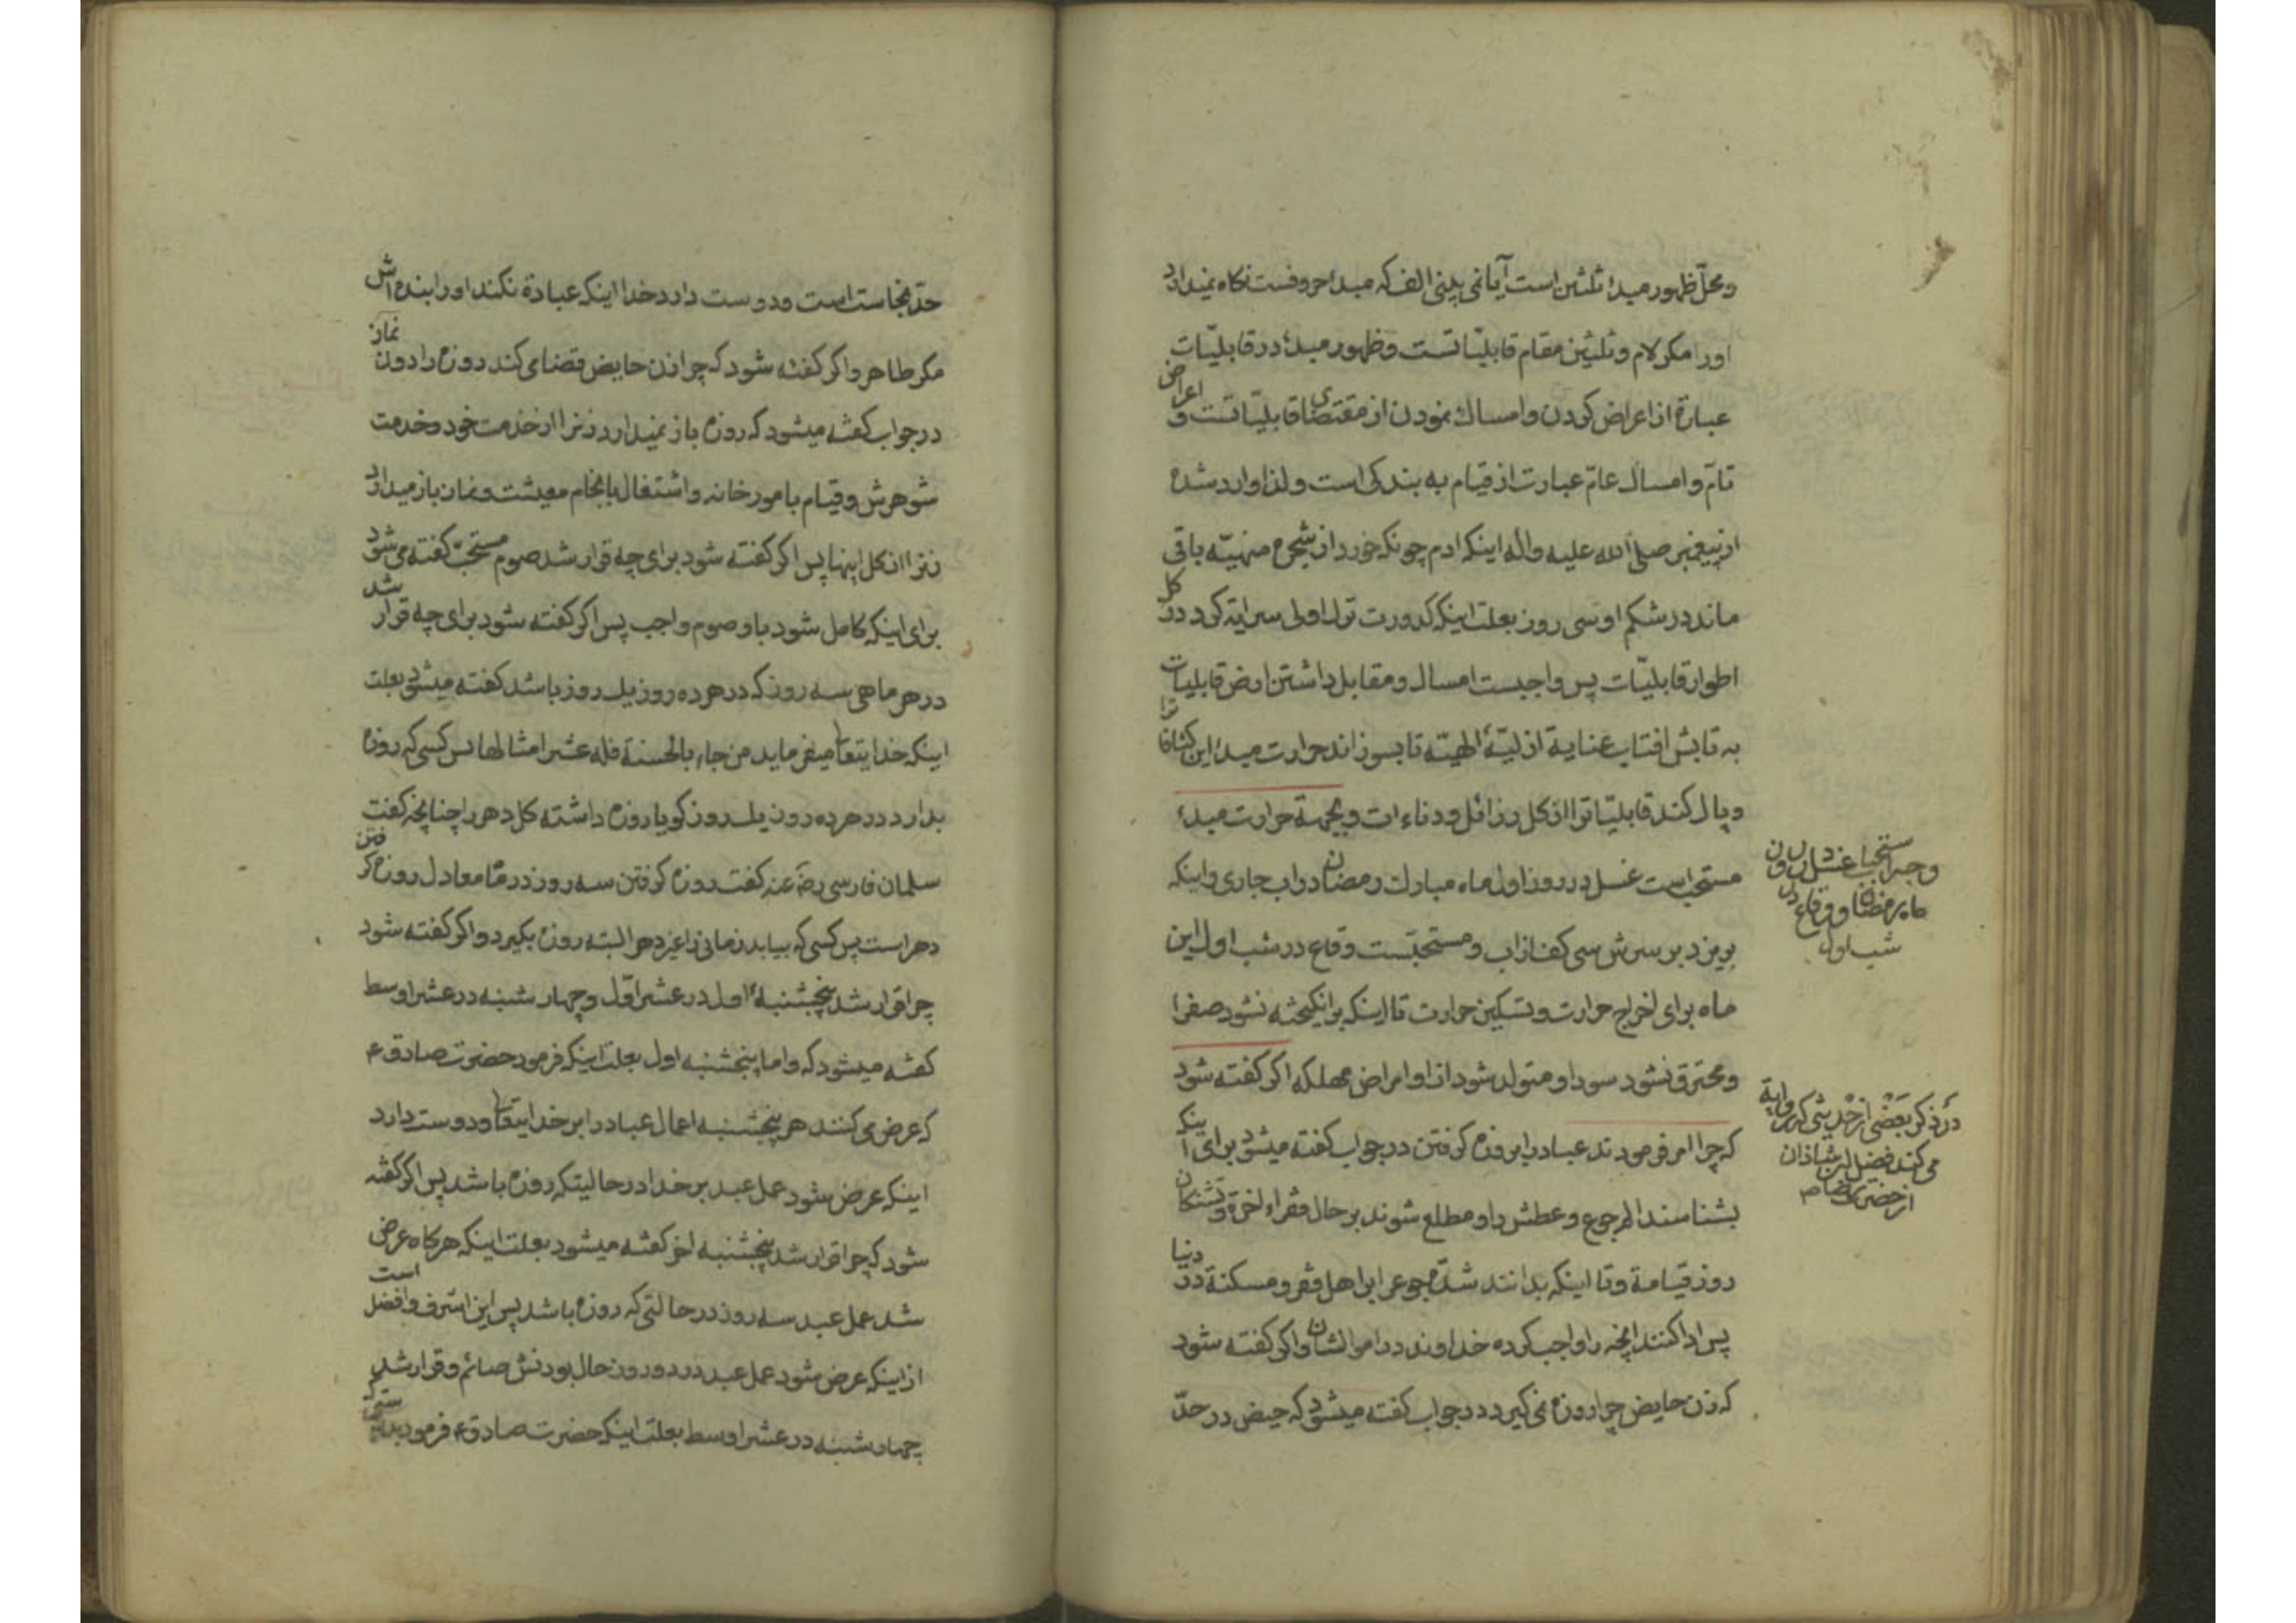 ومحلّ ظهور مبدء ثلثین است آیا نمی بینی الف که مبدء حروفست نکاه نمیدارد
اورا مکر لام و ثلثین مقام قابلیّاتست و ظهور مبدء در قابلیّات
عبارة از اعراض کردن و امساك نمودن از مقتضای قابلیّاتست و اعراض
تامّ و امساك عامّ عبارت از قیام به بندکی است و لذا وارد شده
از پیغمبر صلی الله علیه واله اینکه ادم چونکه خورد از شجره منهیّه باقی
ماند در شکم او سی روز بعلت اینکه کدورت ترك اولی سرایة کرد در کل
اطوار قابلیّات پس واجبست امساك و مقابل داشتن ارض قابلیات
به تابش افتاب عنایة ازلیّهٔ الهیّه تا بسوزاند حرارت مبدء این کثافاترا
و پاك کند قابلیّاترا از کل رذائل و دناءات و بجهة حرارت مبدء
مستحب است غسل در روز اول ماه مبارك رمضان در اب جاری و اینکه
بریزد بر سرش سی کف از اب و مستحبّست وقاع در شب اول این
ماه برای اخراج حرارت و تسکین حرارت تا اینکه برانکیخته نشود صفرا
و محترق نشود سودا و متولد شود از او امراض مهلکه اکر کفته شود
که چرا امر فرمودند عباد را بروزه کرفتن در جواب کفته میشود برای اینکه
بشناسند الم جوع و عطش را و مطلع شوند بر حال فقراء اخرة و تشنکان
روز قیامة و تا اینکه بدانند شدّة جوع را بر اهل فقر و مسکنة در دنیا
پس ادا کنند انچه را واجب کرده خداوند در اموالشان و اکر کفته شود
که زن حایض چرا روزه نمی کیرد در جواب کفته میشود که حیض در حدّ
وجه استحباب غسل در روز
ماه رمضان و وقاع در
شب اول
در ذکر بعضی از حدیثی که روایة
می کند فضل ابن شاذان
از حضرت رضا ع
حدّ نجاست است و دوست دارد خدا اینکه عبادة نکند اورا بنده اش
مکر طاهر و اکر کفته شود که چرا زن حایض قضا می کند روزه را دون نماز
در جواب کفته میشود که روزه باز نمیدارد زنرا از خدمت خود و خدمت
شوهرش و قیام بامور خانه و اشتغال بانجام معیشت و نماز باز میدارد
زنرا از کل اینها پس اکر کفته شود برای چه قرار شد صوم مستحبّ کفته می شود
برای اینکه کامل شود باو صوم واجب پس اکر کفته شود برای چه قرار شد
در هر ماهی سه روز که در هر ده روز یك روز باشد کفته میشود بعلت
اینکه خدایتعا میفرماید من جاء بالحسنة فله عشر امثالها پس کسی که روزه
بدارد در هر ده روز یك روز کویا روزه داشته کل دهر را چنانچه کفت
سلمان فارسی رضه عنه کفت روزه کرفتن سه روز در ماه معادل روزه کرفتن
دهر است پس کسی که بیابد زمانی را غیر دهر البته روزه بکیرد و اکر کفته شود
چرا قرار شد پنجشنبهٔ اول در عشر اوّل و چهار شنبه در عشر اوسط
کفته میشود که و اما پنجشنبه اول بعلت اینکه فرمود حضرت صادق ع
که عرض می کنند هر پنجشنبه اعمال عباد را بر خدایتعا و دوست دارد
اینکه عرض شود عمل عبد بر خدا در حالیتکه روزه باشد پس اکر کفته
شود که چرا قرار شد پنجشنبه اخر کفته میشود بعلت اینکه هرکاه عرض
شد عمل عبد سه روز در حالتی که روزه باشد پس این اشرف و افضل است
از اینکه عرض شود عمل عبد در دو روز حال بودنش صائم و قرار شد
چهار شنبه در عشر اوسط بعلت اینکه حضرت صادق ع فرمود